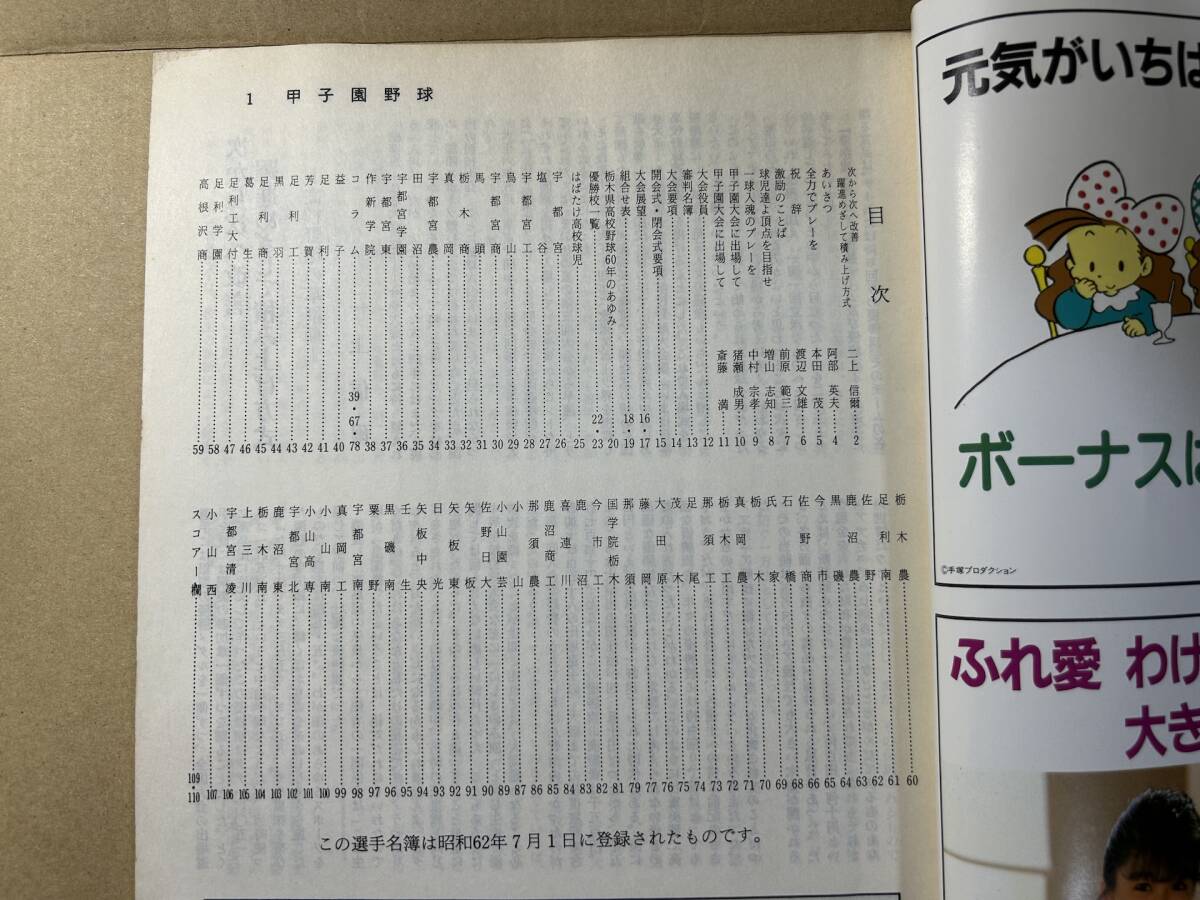 1 甲子園野球
目次
次から次へ改善
躍進めざして積み上げ方式 二上信爾 2
あいさつ 阿部英夫 4
全力でプレーを 本田茂 5
祝辞 渡辺文雄 6
激励のことば 前原範三 7
球児達よ頂点を目指せ 増山志知 8
一球入魂のプレーを 中村宗孝 9
甲子園大会に出場して 猪瀬成男 10
甲子園大会に出場して 斎藤満 11
大会役員 12
審判名簿 13
大会要項 14
開会式・閉会式要項 15
大会展望 16・17
組合せ表 18・19
栃木県高校野球60年のあゆみ 20
優勝校一覧 22・23
はばたけ高校球児 25
宇都宮 26
塩谷 27
宇都宮工 28
烏山 29
宇都宮商 30
馬頭 31
栃木商 32
真岡 33
宇都宮農 34
田沼 35
宇都宮学園 36
宇都宮東 37
作新学院 38
コラム 39・67・78
益子 40
足利 41
芳賀 42
足利工 43
黒羽 44
足利商 45
葛生 46
足利工大付 47
足利学園 58
高根沢商 59
栃木農
足利南
佐野
鹿沼農
黒磯
今市
佐野商
石橋
氏家
栃木
真岡農
栃木工
那須工
足尾
茂木
大田原
藤岡
那須
国学院栃木
今市工
鹿沼
喜連川
鹿沼商工
那須農
小山
小山園芸
佐野日大
矢板
矢板東
日光
矢板中央
壬生
黒磯南
粟野
宇都宮南 98
真岡工 99
小山南 100
小山高専 101
宇都宮北 102
鹿沼東 103
栃木南 104
上三川 105
宇都宮清凌 106
小山西 107
スコアー欄 109・110
この選手名簿は昭和62年7月1日に登録されたものです。
元気がいちは
ボーナスは
©手塚プロダクション
ふれ愛 わけ
大き